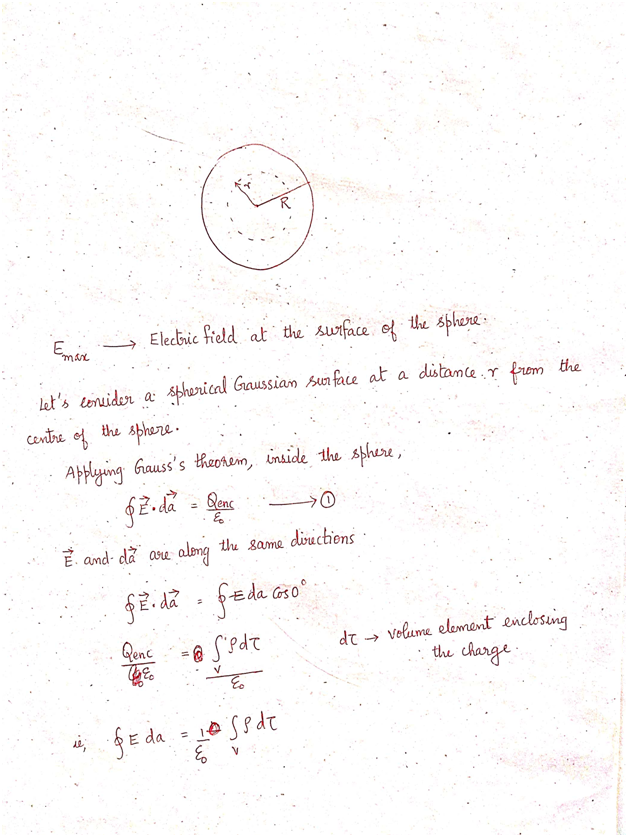 r
R
E max → Electric field at the surface of the sphere.
Let's consider a spherical Gaussian surface at a distance r from the
centre of the sphere.
Applying Gauss's theorem, inside the sphere,
∮ E⃗ · da⃗ = Qenc / ε₀ → ①
E⃗ and da⃗ are along the same directions.
∮ E⃗ · da⃗ = ∮ E da cos 0°
Qenc / ε₀ = ∫_V ρ dτ / ε₀ dτ → volume element enclosing
the charge.
ie, ∮ E da = 1/ε₀ ∫_V ρ dτ